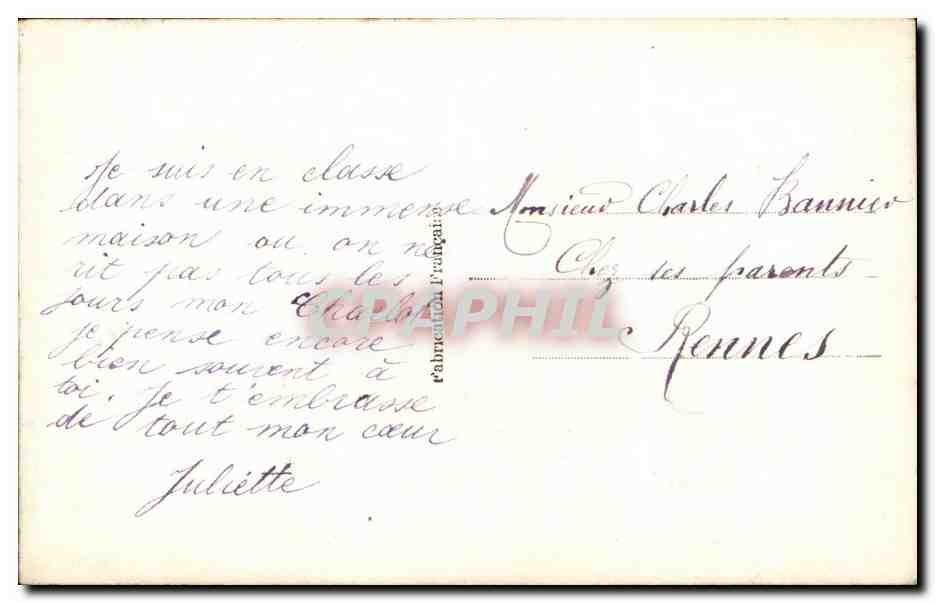 Je suis en classe
dans une immense
maison ou on ne
rit pas tous les
jours mon Charlot
je pense encore
bien souvent à
toi. Je t'embrasse
de tout mon cœur
Juliette
Fabrication Française
Monsieur Charles Bannier
Chez ses parents
Rennes
CPAPHIL